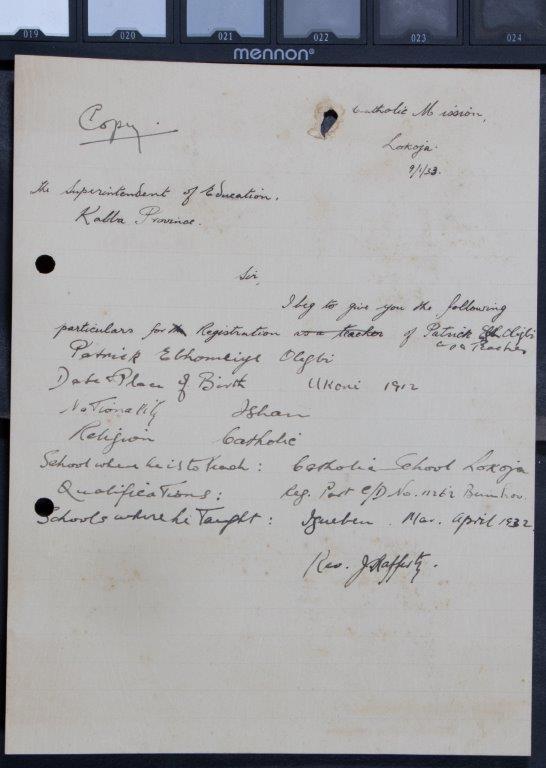 019 020 021 022 023 024
mennon®
Copy.
Catholic Mission,
Lokoja.
9/1/33.
The Superintendent of Education,
Kabba Province.
Sir,
I beg to give you the following
particulars for Registration as a teacher of Patrick Olegbi
as a Teacher
Patrick Olegbi
Date & Place of Birth Ukoni 1912
Nationality Ishan
Religion Catholic
School where he is to teach: Catholic School Lokoja
Qualifications: Reg. Part C/D No. 11262 Benin Prov.
Schools where he Taught: Igueben. Mar. April 1932.
Rev. J Rafferty.